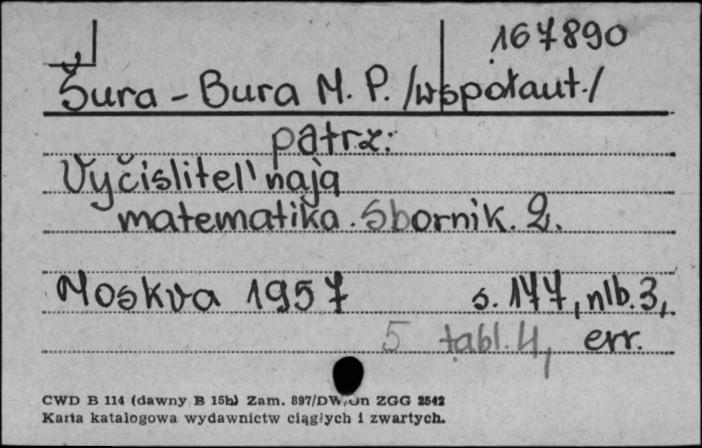 167890
Šura-Bura M. P. /współaut./
patrz:
Vyčislitel'naja
matematika. Sbornik. 2.
Moskva 1957 s. 177, nlb. 3,
5 tabl. 4, err.
CWD B 114 (dawny B 15b) Zam. 897/DW/Jn ZGG 2542
Karta katalogowa wydawnictw ciągłych i zwartych.